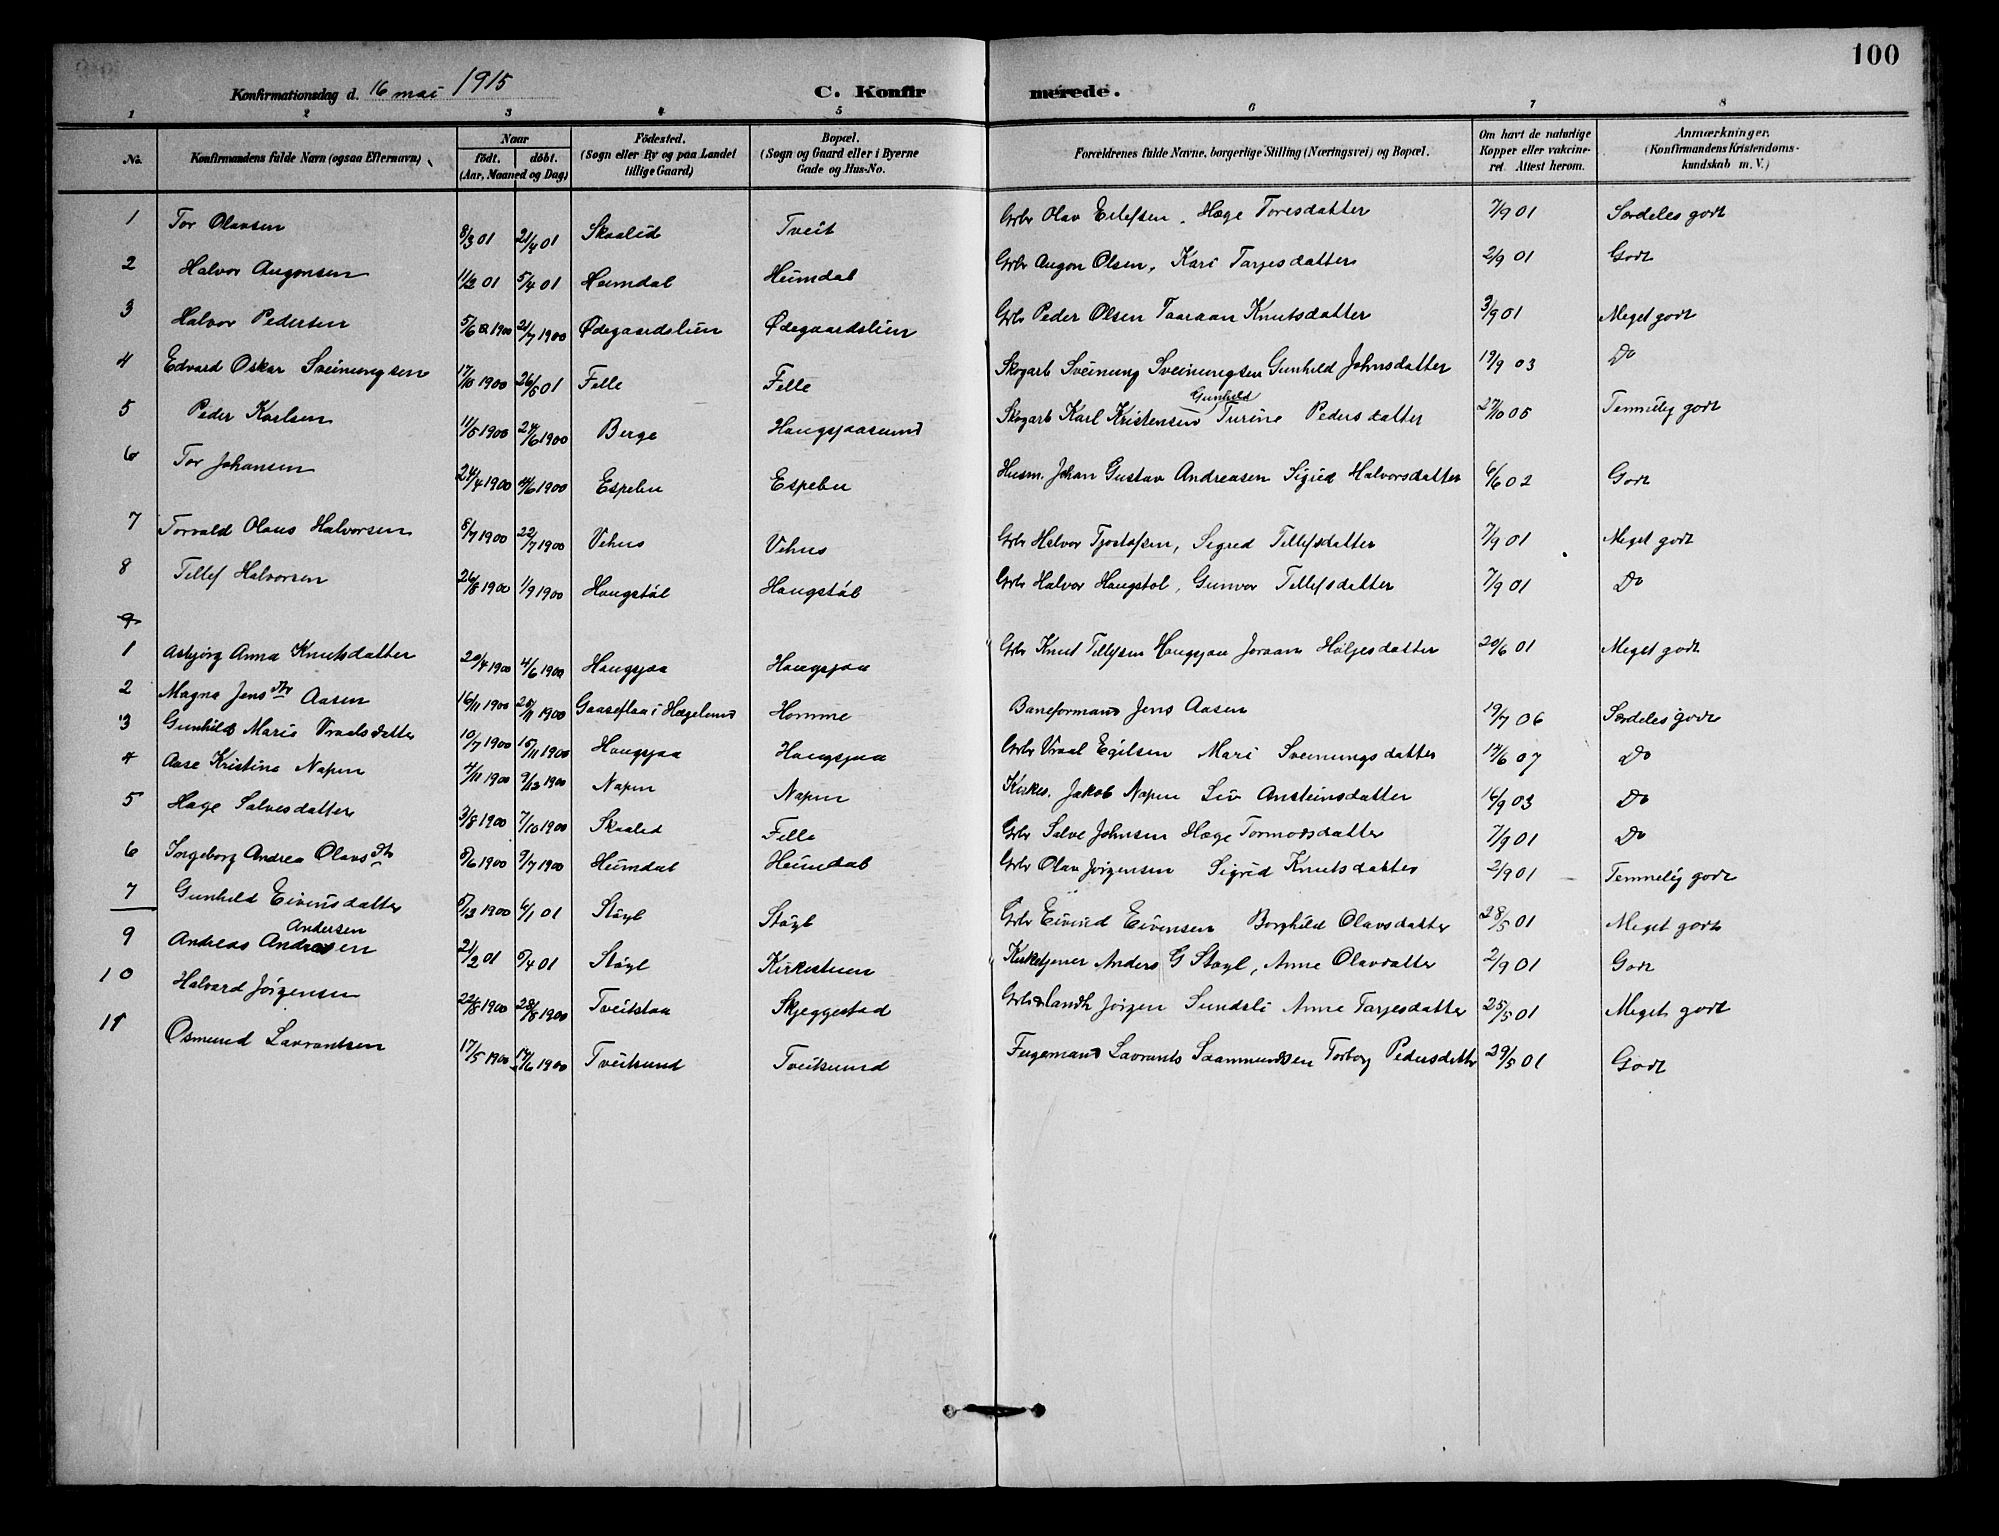 100
Konfirmationsdag d. 16 mai 1915 C. Konfirmerede.
1 2 3 4 5 6 7 8
No. Konfirmandens fulde Navn (ogsaa Efternavn). Naar født. døbt. (Aar, Maaned og Dag) Fødested. (Sogn eller By og paa Landet tillige Gaard) Bopæl. (Sogn og Gaard eller i Byerne Gade og Hus-No. Forældrenes fulde Navne, borgerlige Stilling (Næringsvei) og Bopæl. Om havt de naturlige Kopper eller vakcineret. Attest herom. Anmærkninger. (Konfirmandens Kristendomskundskab m. V.)
1 Tor Olavsen 8/3 01 21/4 01 Skaalid Tveit Grbr Olav Eilefsen, Hæge Toresdatter 7/9 01 Særdeles godt
2 Halvor Augonsen 11/2 01 5/4 01 Heimdal Heimdal Grbr Augon Olsen, Kari Tarjesdatter 2/9 01 Godt
3 Halvor Pedersen 5/6 1900 21/7 1900 Ødegaardslien Ødegaardslien Grbr Peder Olsen Taaraan Knutsdatter 3/9 01 Meget godt
4 Edvard Oskar Sveinungsen 17/10 1900 26/5 01 Felle Felle Skogarb Sveinung Sveinungsen Gunhild Johnsdatter 19/9 03 Do
5 Peder Karlsen 11/5 1900 24/6 1900 Berge Haugsjaasund Skogarb Karl Kristensen Gunhild Turine Pedersdatter 27/10 05 Temmelig godt
6 Tor Johansen 24/4 1900 /6 1900 Espebu Espebu Husm. Johan Gustav Andreasen Sigrid Halvorsdatter 6/6 02 Godt
7 Torvald Olaus Halvorsen 8/7 1900 22/7 1900 Vehus Vehus Grbr Halvor Tjostofsen, Sigrid Tellefsdatter 7/9 01 Meget godt
8 Tellef Halvorsen 26/8 1900 1/9 1900 Haugstøl Haugstøl Grbr Halvor Haugstøl, Gunvor Tellefsdatter 7/9 01 Do
9
1 Asbjørg Anna Knutsdatter 20/4 1900 4/6 1900 Haugsjaa Haugsjaa Grbr Knut Tellefsen Haugsjaa Joraan Høljesdatter 20/6 01 Meget godt
2 Magna Jensdtr Aasen 16/11 1900 25/11 1900 Gaaseflaa i Hægeland Homme Baneformand Jens Aasen 19/7 06 Særdeles godt
3 Gunhild Marie Vraalsdatter 10/7 1900 15/11 1900 Haugsjaa Haugsjaa Grbr Vraal Egilsen Mari Sveinungsdatter 17/6 07 Do
4 Aase Kristine Napen 4/11 1900 9/12 1900 Napen Napen Kirkes. Jakob Napen Liv Ansteinsdatter 16/9 03 Do
5 Hæge Salvesdatter 3/8 1900 7/10 1900 Skaalid Felle Grbr Salve Johnsen Hæge Tormodsdatter 7/9 01 Do
6 Ingeborg Andrea Olavsdtr 8/6 1900 9/7 1900 Heimdal Heimdal Grbr Olav Jørgensen Sigrid Knutsdatter 2/9 01 Temmelig godt
7 Gunhild Eivindsdatter 5/12 1900 6/1 01 Støyl Støyl Grbr Eivind Eivensen Borghild Olavsdatter 28/5 01 Meget godt
9 Andreas Andersen 21/2 01 5/4 01 Støyl Kirkestuen Kirketjener Anders G Støyl, Anne Olavdatter 2/9 01 Godt
10 Halvard Jørgensen 22/8 1900 28/8 1900 Tveitstaa Skjeggestad Grbr & landh Jørgen Sundsli Anne Tarjesdatter 25/5 01 Meget godt
11 Osmund Lavrantsen 17/5 1900 17/6 1900 Tveitsund Tveitsund Fergemand Lavrants Saamundsen Torborg Pedersdatter 29/5 01 Godt